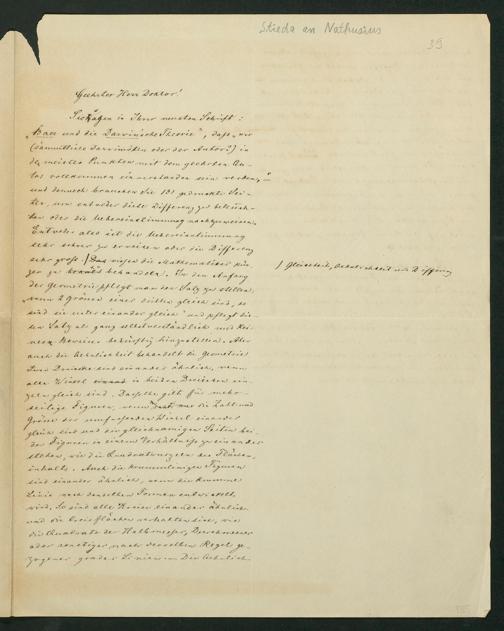 Stieda an Nathusius
39
Geehrter Herr Doktor!
Sie sagen in Ihrer neuesten Schrift:
„Baer und die Darwinsche Theorie“, daß „wir
(sämmtliche Darwinisten oder der Autor?) in
den meisten Punkten mit dem geehrten Au-
tor vollkommen einverstanden sein werden,“
und dennoch brauchen Sie 131 gedruckte Sei-
ten, um entweder diese Differenz zu beleuch-
ten oder die Uebereinstimmung nachzuweisen.
Entweder also ist die Uebereinstimmung
sehr schwer zu erweisen oder die Differenz
sehr groß. wissen die Mathematiker
zu behandeln. In den Anfang
der Geometrie pflegt man den Satz zu stellen,
wenn 2 Grössen einer dritten gleich sind, so
sind sie unter einander gleich und pflegt die-
sen Satz als ganz selbstverständlich und kei-
nem Beweise bedürftig hinzustellen. Aber
auch die Aehnlichkeit behandelt die Geometrie.
Zwei Dreiecke sind einander ähnlich, wenn
alle Winkel in beiden Dreiecken ein-
zeln gleich sind. Dasselbe gilt für mehr-
seitige Figuren, wenn nur die Zahl und
Grösse der umfassenden Winkel einander
gleich sind und die gleichnamigen Seiten bei-
der Figuren in einem Verhältniss zu einander
stehen, wie die Quadratwurzeln des Flächen-
inhalts. Auch die krummlinigen Figuren
sind einander ähnlich, wenn die krumme
Linie nach denselben Formen entwickelt
wird. So sind alle Kreise einander ähnlich
und die Kreisflächen verhalten sich, wie
die Quadrate der Halbmesser, Durchmesser
oder sonstiger nach derselben Regel ge-
zogener grader Linien. Die Aehnlich-
Gleichheit, Aehnlichkeit und Differenz